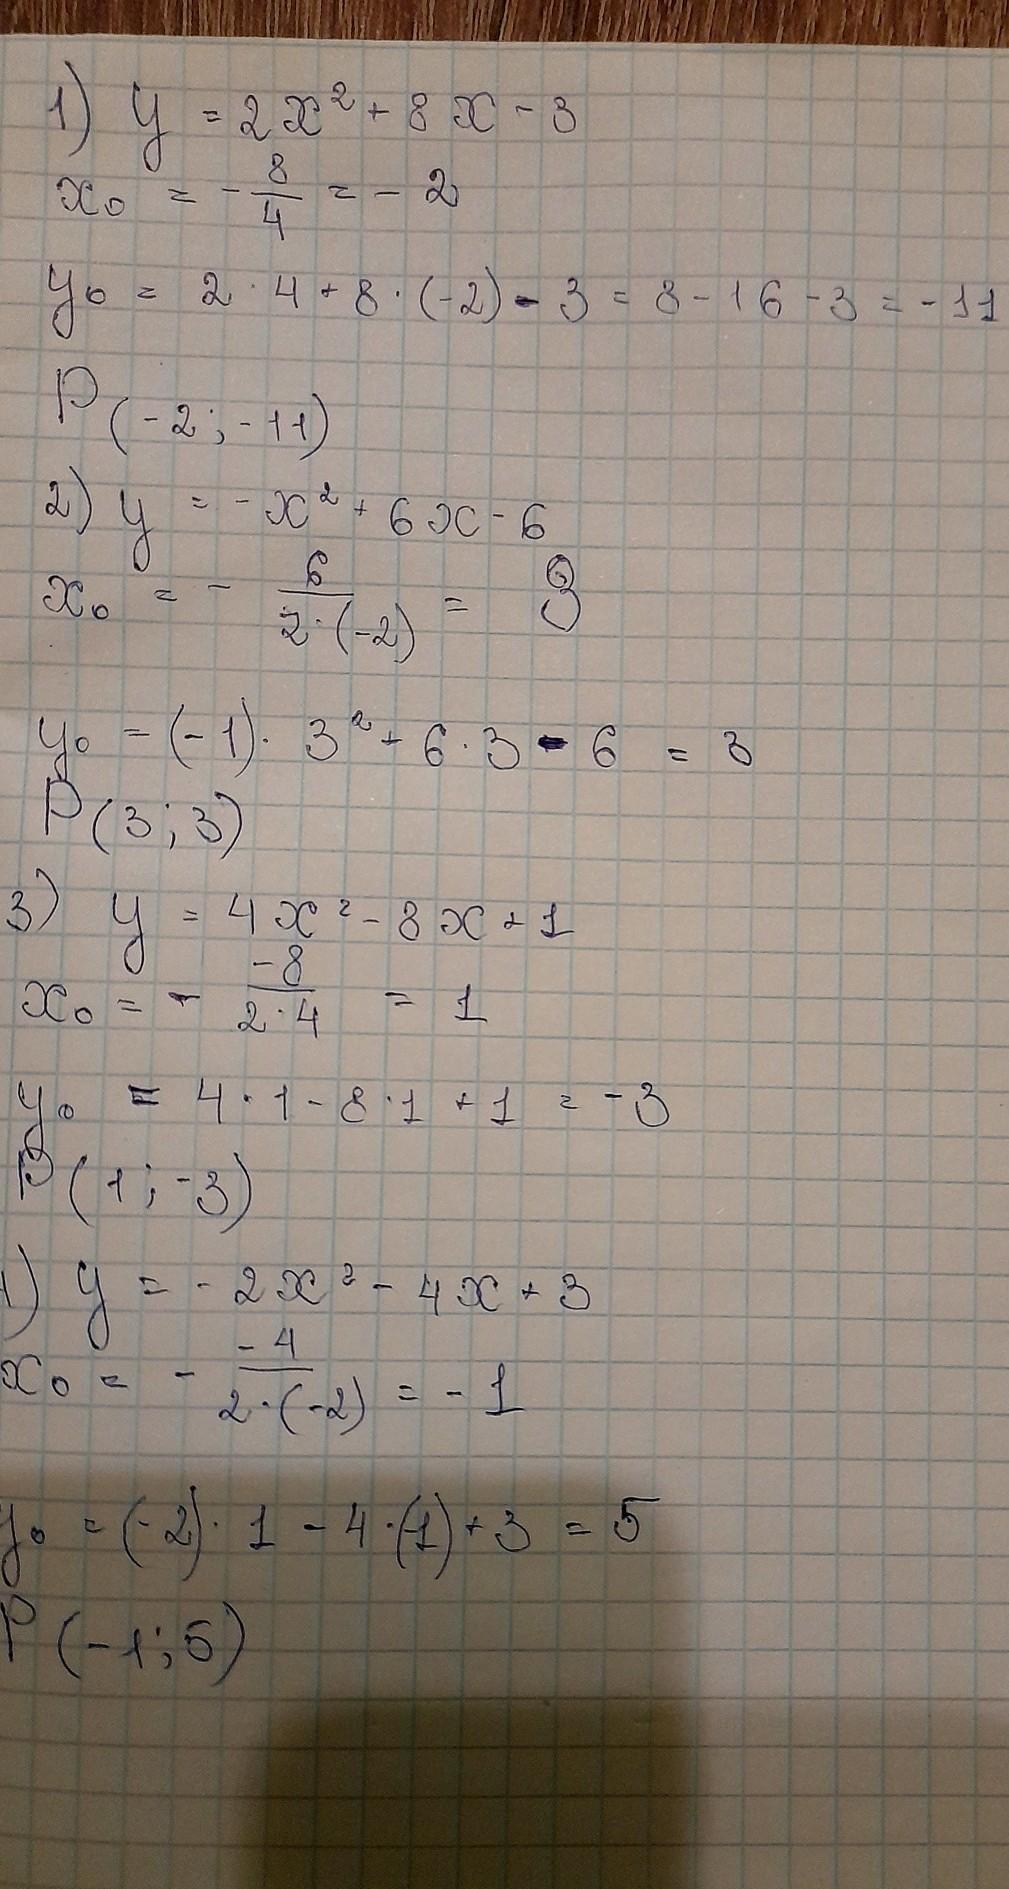 1) y = 2x² + 8x - 3
x₀ = - 8/4 = - 2
y₀ = 2 · 4 + 8 · (-2) - 3 = 8 - 16 - 3 = -11
P (-2; -11)
2) y = -x² + 6x - 6
x₀ = - 6/(2·(-2)) = 3
y₀ = (-1) · 3² + 6 · 3 - 6 = 3
P (3; 3)
3) y = 4x² - 8x + 1
x₀ = - -8/(2·4) = 1
y₀ = 4 · 1 - 8 · 1 + 1 = -3
P (1; -3)
4) y = - 2x² - 4x + 3
x₀ = - -4/(2·(-2)) = - 1
y₀ = (-2) · 1 - 4 · (-1) + 3 = 5
P (-1; 5)